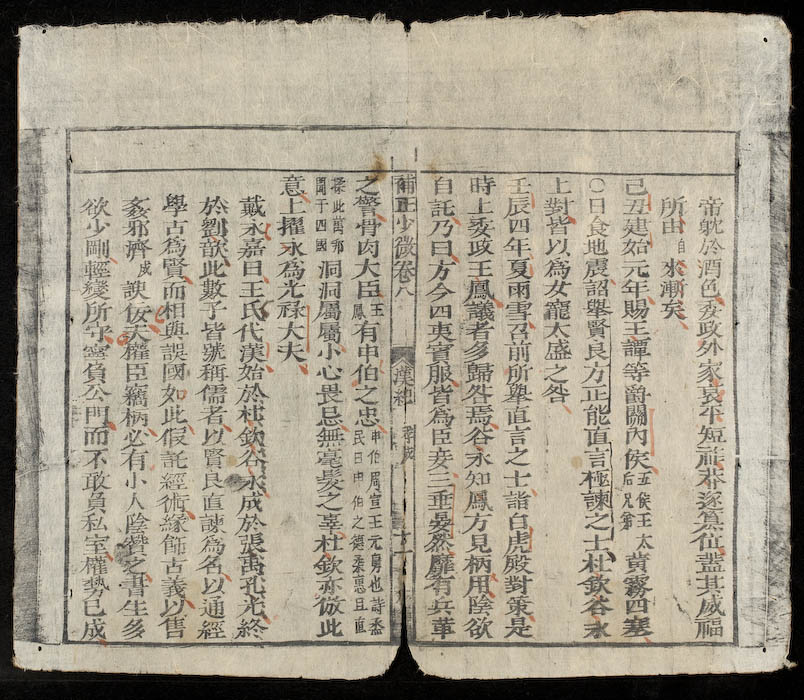 帝躭於酒色委政外家哀平短祚莽遂簒位蓋其威福
所由自來漸矣
己丑建始元年賜王譚等爵關內侯五侯王太后兄弟黃霧四塞
○日食地震詔舉賢良方正能直言極諫之士杜欽谷永
上對皆以爲女寵太盛之咎
壬辰四年夏雨雪召前所舉直言之士詣白虎殿對策是
時上委政王鳳議者多歸咎焉谷永知鳳方見柄用陰欲
自託乃曰方今四夷賓服皆爲臣妾三垂晏然靡有兵革
補正少微卷八 漢紀 孝成 十一
之警骨肉大臣王鳳有申伯之忠申伯周宣王元舅也詩崧民曰申伯之德柔惠且直
揉此萬邦聞于四國洞洞屬屬小心畏忌無毫髮之辜杜欽亦倣此
意上擢永爲光祿大夫
戴永嘉曰王氏代漢始於杜欽谷永成於張禹孔光終
於劉歆此數子皆號稱儒者以賢良直諫爲名以通經
學古爲賢而相與誤國如此假託經術緣飾古義以售
姦邪濟成諛佞夫權臣竊柄必有小人陰贊之書生多
欲少剛輕變所守寧負公門而不敢負私室權勢已成